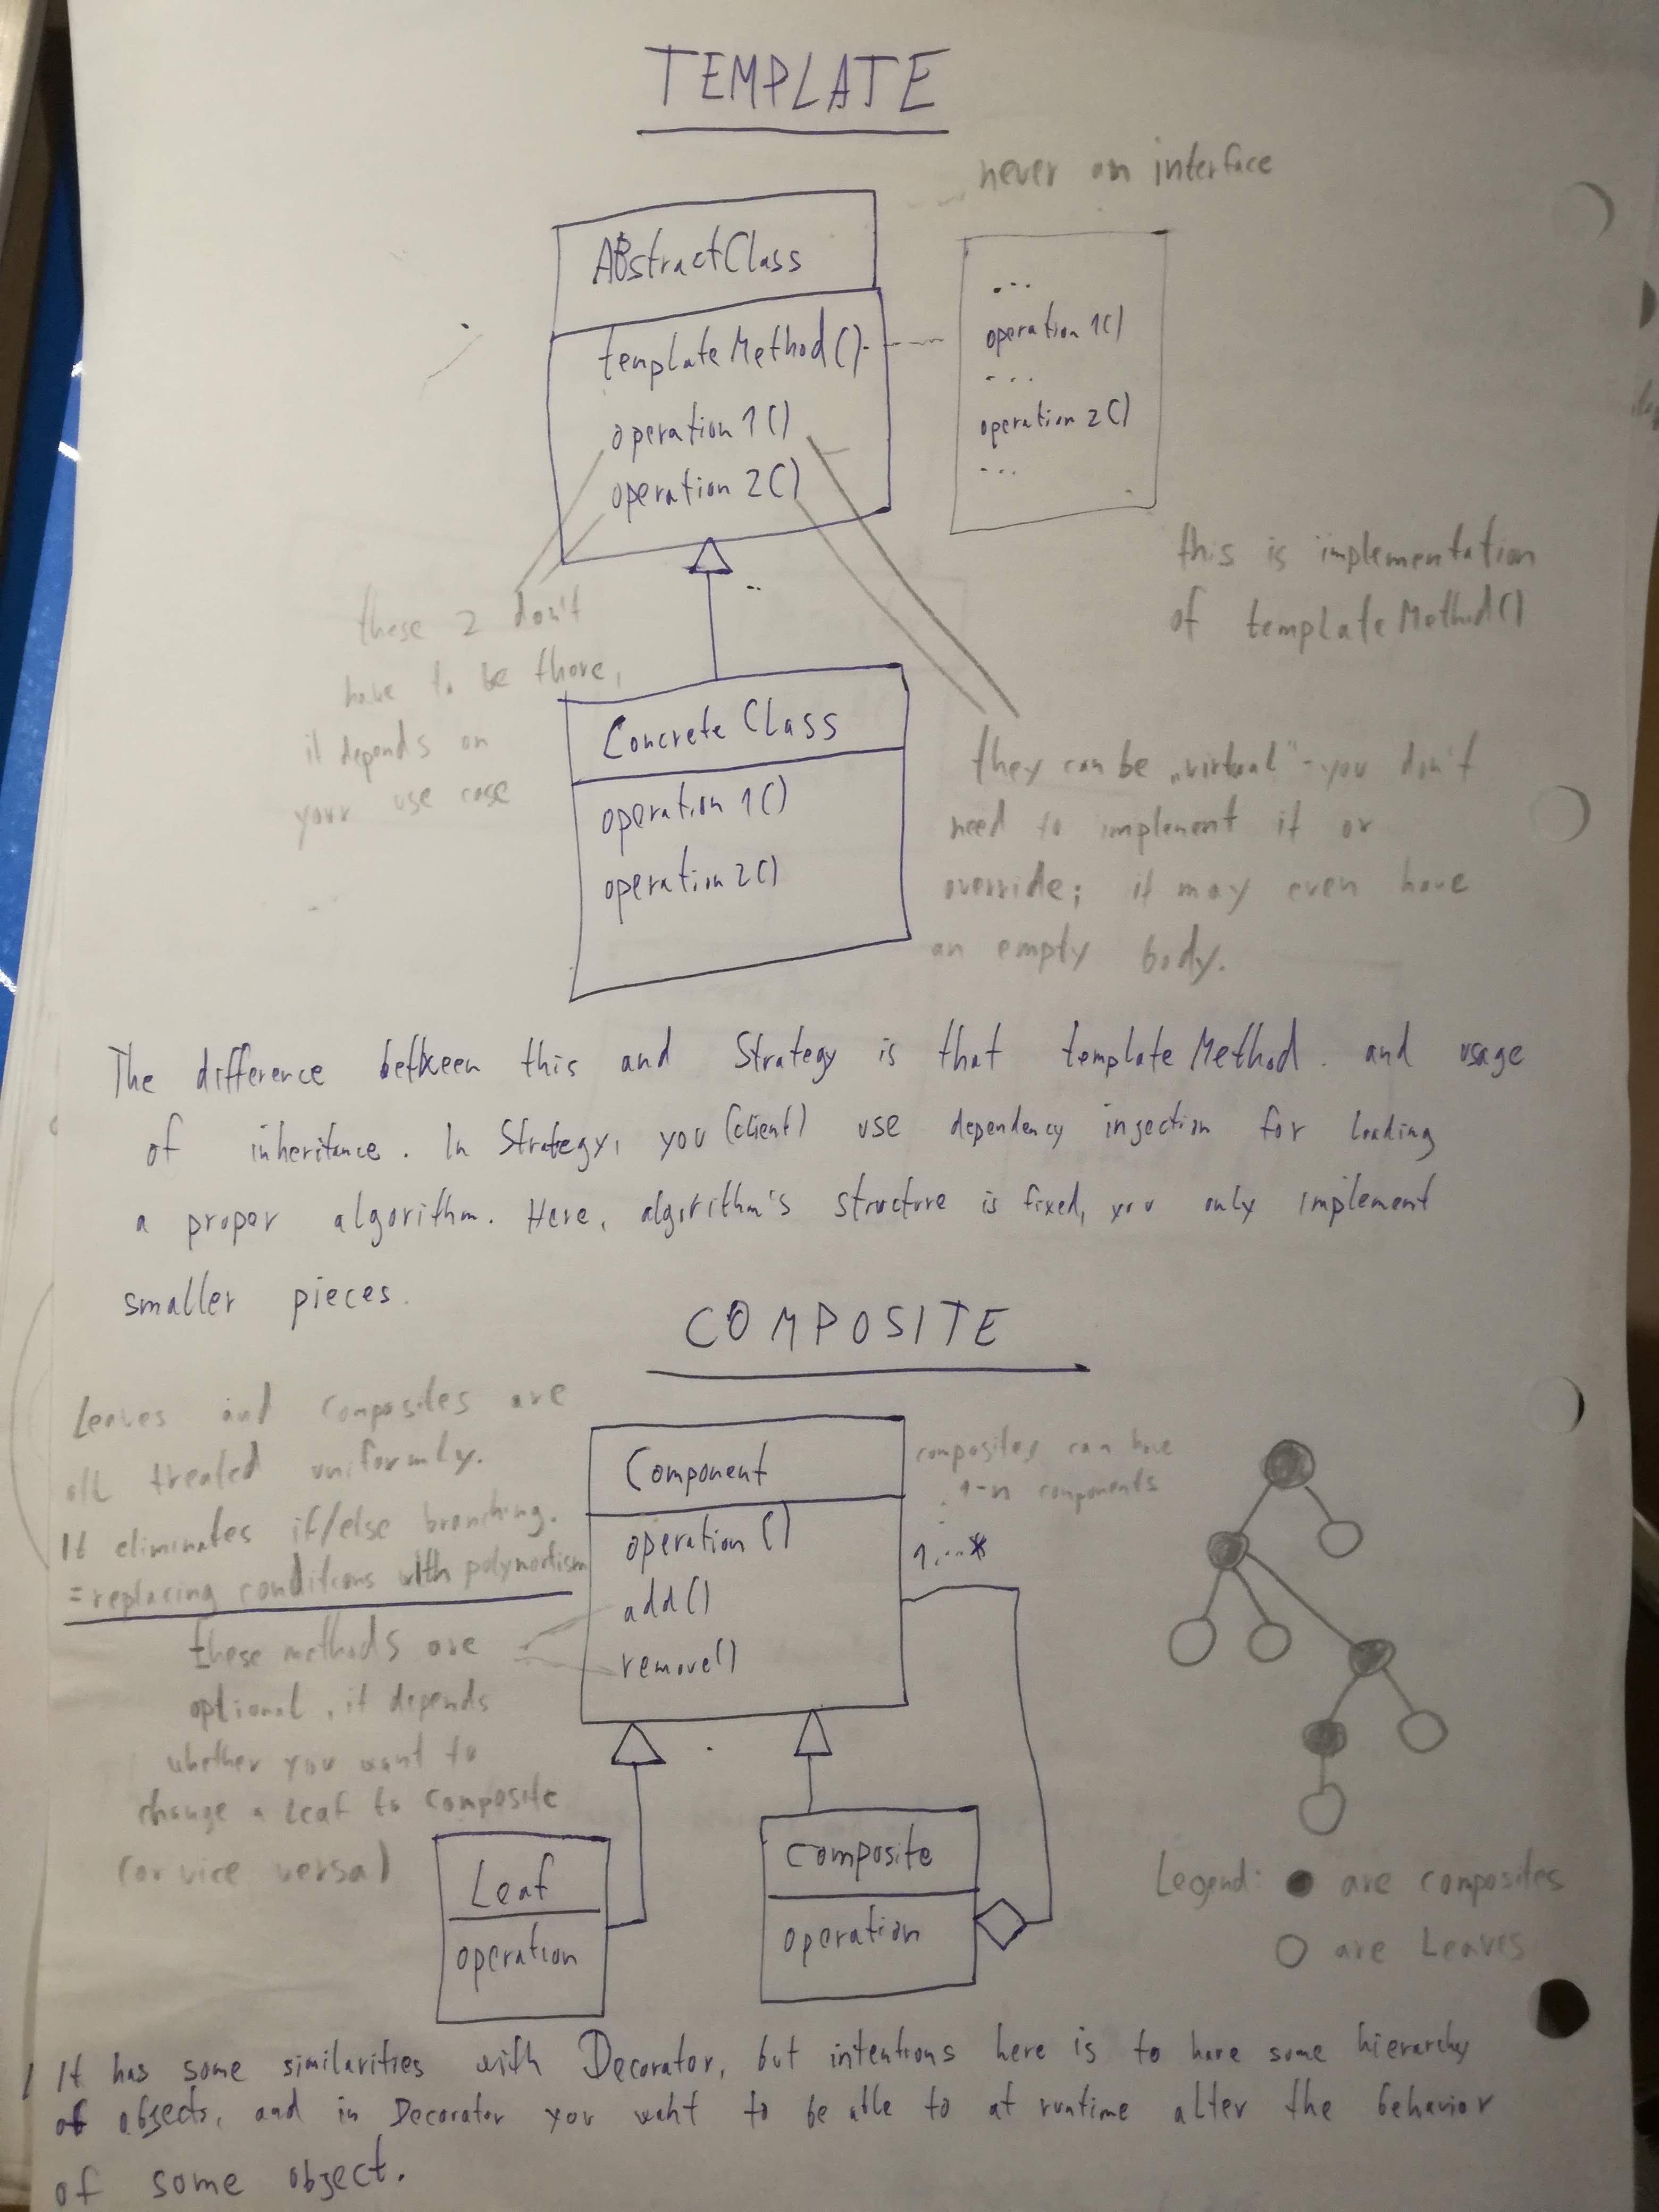 TEMPLATE
never an interface
ABstractClass
templateMethod()
operation 1()
operation 2()
...
operation 1()
...
operation 2()
...
this is implementation
of templateMethod()
these 2 don't
have to be there,
it depends on
your use case
Concrete Class
operation 1()
operation 2()
they can be „virtual" - you don't
need to implement it or
override; it may even have
an empty body.
The difference between this and Strategy is that templateMethod. and usage
of inheritance. In Strategy, you (client) use dependency injection for loading
a proper algorithm. Here, algorithm's structure is fixed, you only implement
smaller pieces.
COMPOSITE
Leaves and composites are
all treated uniformly.
It eliminates if/else branching.
= replacing conditions with polymorfism
these methods are
optional, it depends
whether you want to
change a Leaf to composite
(or vice versa)
Component
operation ()
add()
remove()
composites can have
1-n components
1...*
Leaf
operation
composite
operation
Legend: ● are composites
○ are Leaves
! It has some similarities with Decorator, but intentions here is to have some hierarchy
of objects, and in Decorator you want to be able to at runtime alter the behavior
of some object.